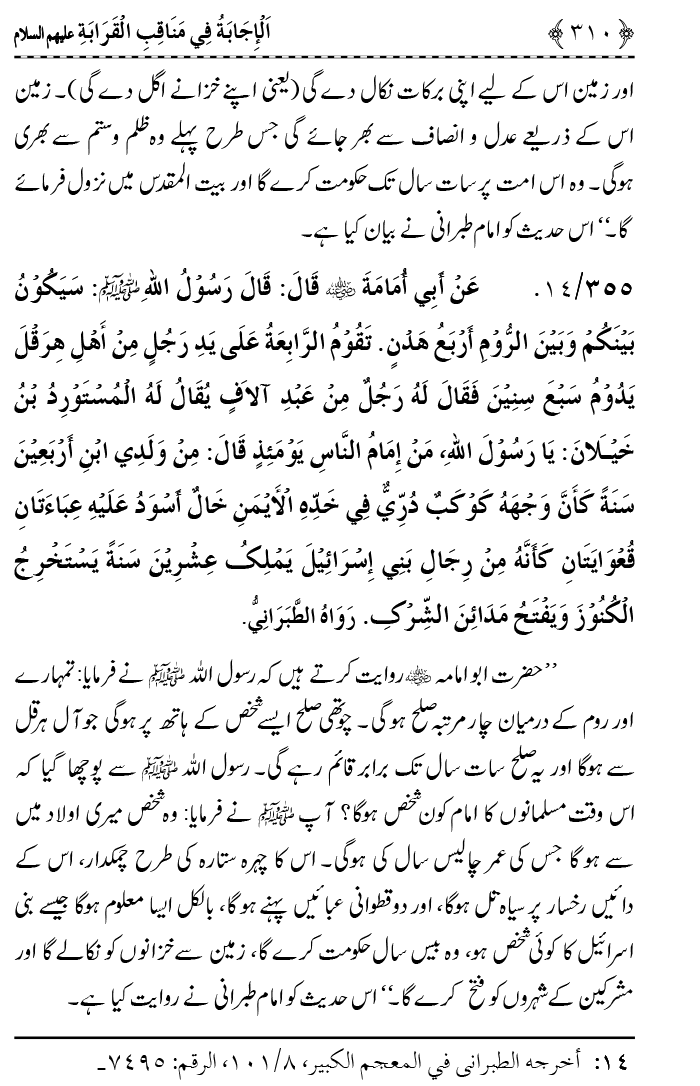 اَلْإِجَابَةُ فِي مَنَاقِبِ الْقَرَابَةِ علیہم السلام ﴿٣١٠﴾
اور زمین اس کے لیے اپنی برکات نکال دے گی (یعنی اپنے خزانے اگل دے گی)۔ زمین
اس کے ذریعے عدل و انصاف سے بھر جائے گی جس طرح پہلے وہ ظلم و ستم سے بھری
ہوگی۔ وہ اس امت پر سات سال تک حکومت کرے گا اور بیت المقدس میں نزول فرمائے
گا۔‘‘ اس حدیث کو امام طبرانی نے بیان کیا ہے۔
١٤/٣٥٥. عَنْ أَبِي أُمَامَةَ رضي الله عنه قَالَ: قَالَ رَسُوْلُ اللهِ ﷺ: سَيَكُوْنُ
بَيْنَكُمْ وَبَيْنَ الرُّوْمِ أَرْبَعُ هَدْنٍ. تَقُوْمُ الرَّابِعَةُ عَلَى يَدِ رَجُلٍ مِنْ أَهْلِ هِرَقْلَ
يَدُوْمُ سَبْعَ سِنِيْنَ فَقَالَ لَهُ رَجُلٌ مِنْ عَبْدِ آلافٍ يُقَالُ لَهُ الْمُسْتَوْرِدُ بْنُ
خَيْلَانَ: يَا رَسُوْلَ اللهِ، مَنْ إِمَامُ النَّاسِ يَوْمَئِذٍ قَالَ: مِنْ وَلَدِي ابْنِ أَرْبَعِيْنَ
سَنَةً كَأَنَّ وَجْهَهُ كَوْكَبٌ دُرِّيٌّ فِي خَدِّهِ الْأَيْمَنِ خَالٌ أَسْوَدُ عَلَيْهِ عِبَاءَتَانِ
قُعْوَايَتَانِ كَأَنَّهُ مِنْ رِجَالِ بَنِي إِسْرَائِيْلَ يَمْلِكُ عِشْرِيْنَ سَنَةً يَسْتَخْرِجُ
الْكُنُوْزَ وَيَفْتَحُ مَدَائِنَ الشِّرْكِ. رَوَاهُ الطَّبَرَانِيُّ.
’’حضرت ابو امامہ رضی اللہ عنہ روایت کرتے ہیں کہ رسول اللہ ﷺ نے فرمایا: تمہارے
اور روم کے درمیان چار مرتبہ صلح ہوگی۔ چوتھی صلح ایسے شخص کے ہاتھ پر ہوگی جو آل ہرقل
سے ہوگا اور یہ صلح سات سال تک برابر قائم رہے گی۔ رسول اللہ ﷺ سے پوچھا گیا کہ
اس وقت مسلمانوں کا امام کون شخص ہوگا؟ آپ ﷺ نے فرمایا: وہ شخص میری اولاد میں
سے ہوگا جس کی عمر چالیس سال کی ہوگی۔ اس کا چہرہ ستارہ کی طرح چمکدار، اس کے
دائیں رخسار پر سیاہ تل ہوگا، اور دو قطوانی عبائیں پہنے ہوگا، بالکل ایسا معلوم ہوگا جیسے بنی
اسرائیل کا کوئی شخص ہو، وہ بیس سال حکومت کرے گا، زمین سے خزانوں کو نکالے گا اور
مشرکین کے شہروں کو فتح کرے گا۔‘‘ اس حدیث کو امام طبرانی نے روایت کیا ہے۔
١٤: أخرجه الطبرانی في المعجم الكبير، ٨/١٠١، الرقم: ٧٤٩٥۔